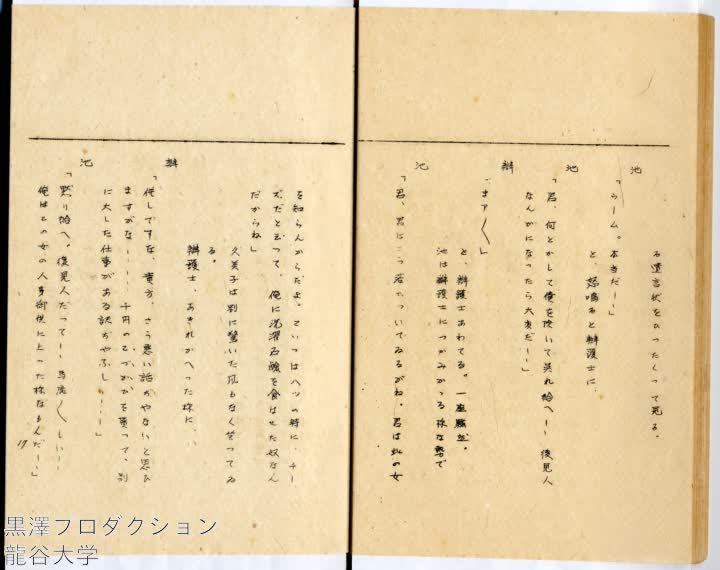 る遺言状をひつたくつて見る。
池
「うーム。本当だ！」
と、怒鳴ると辯護士に、
池
「君、何とかして俺を使いて呉れ給へ！ 後見人
なんかになつたら大変だ！」
辯
「まァ〱」
と、辯護士あわてる。一座騒然。
池は辯護士につかみかゝる様な勢で
池
「君、君は二つ若
ついてゐるがね。君は此の女
を知らんからだよ。こいつは八ツの時に、チー
ズだと云つて、俺に洗濯石鹸を食はせた奴なん
だからね」
久美子は別に驚いた風もなく笑つてゐ
る。
辯護士、あきれかへつた様に、
辯
「併しですな、貴方、さう悪い話ぢやないと思ひ
ますがな——千円のこづかひを貰つて、別
に大した仕事がある訳ぢやなし——」
池
「黙り給へ。後見人だつて！ 馬鹿〱しい！
俺はこの女の人身御供に上つた様なもんだ！」
17
黒澤プロダクション
龍谷大学